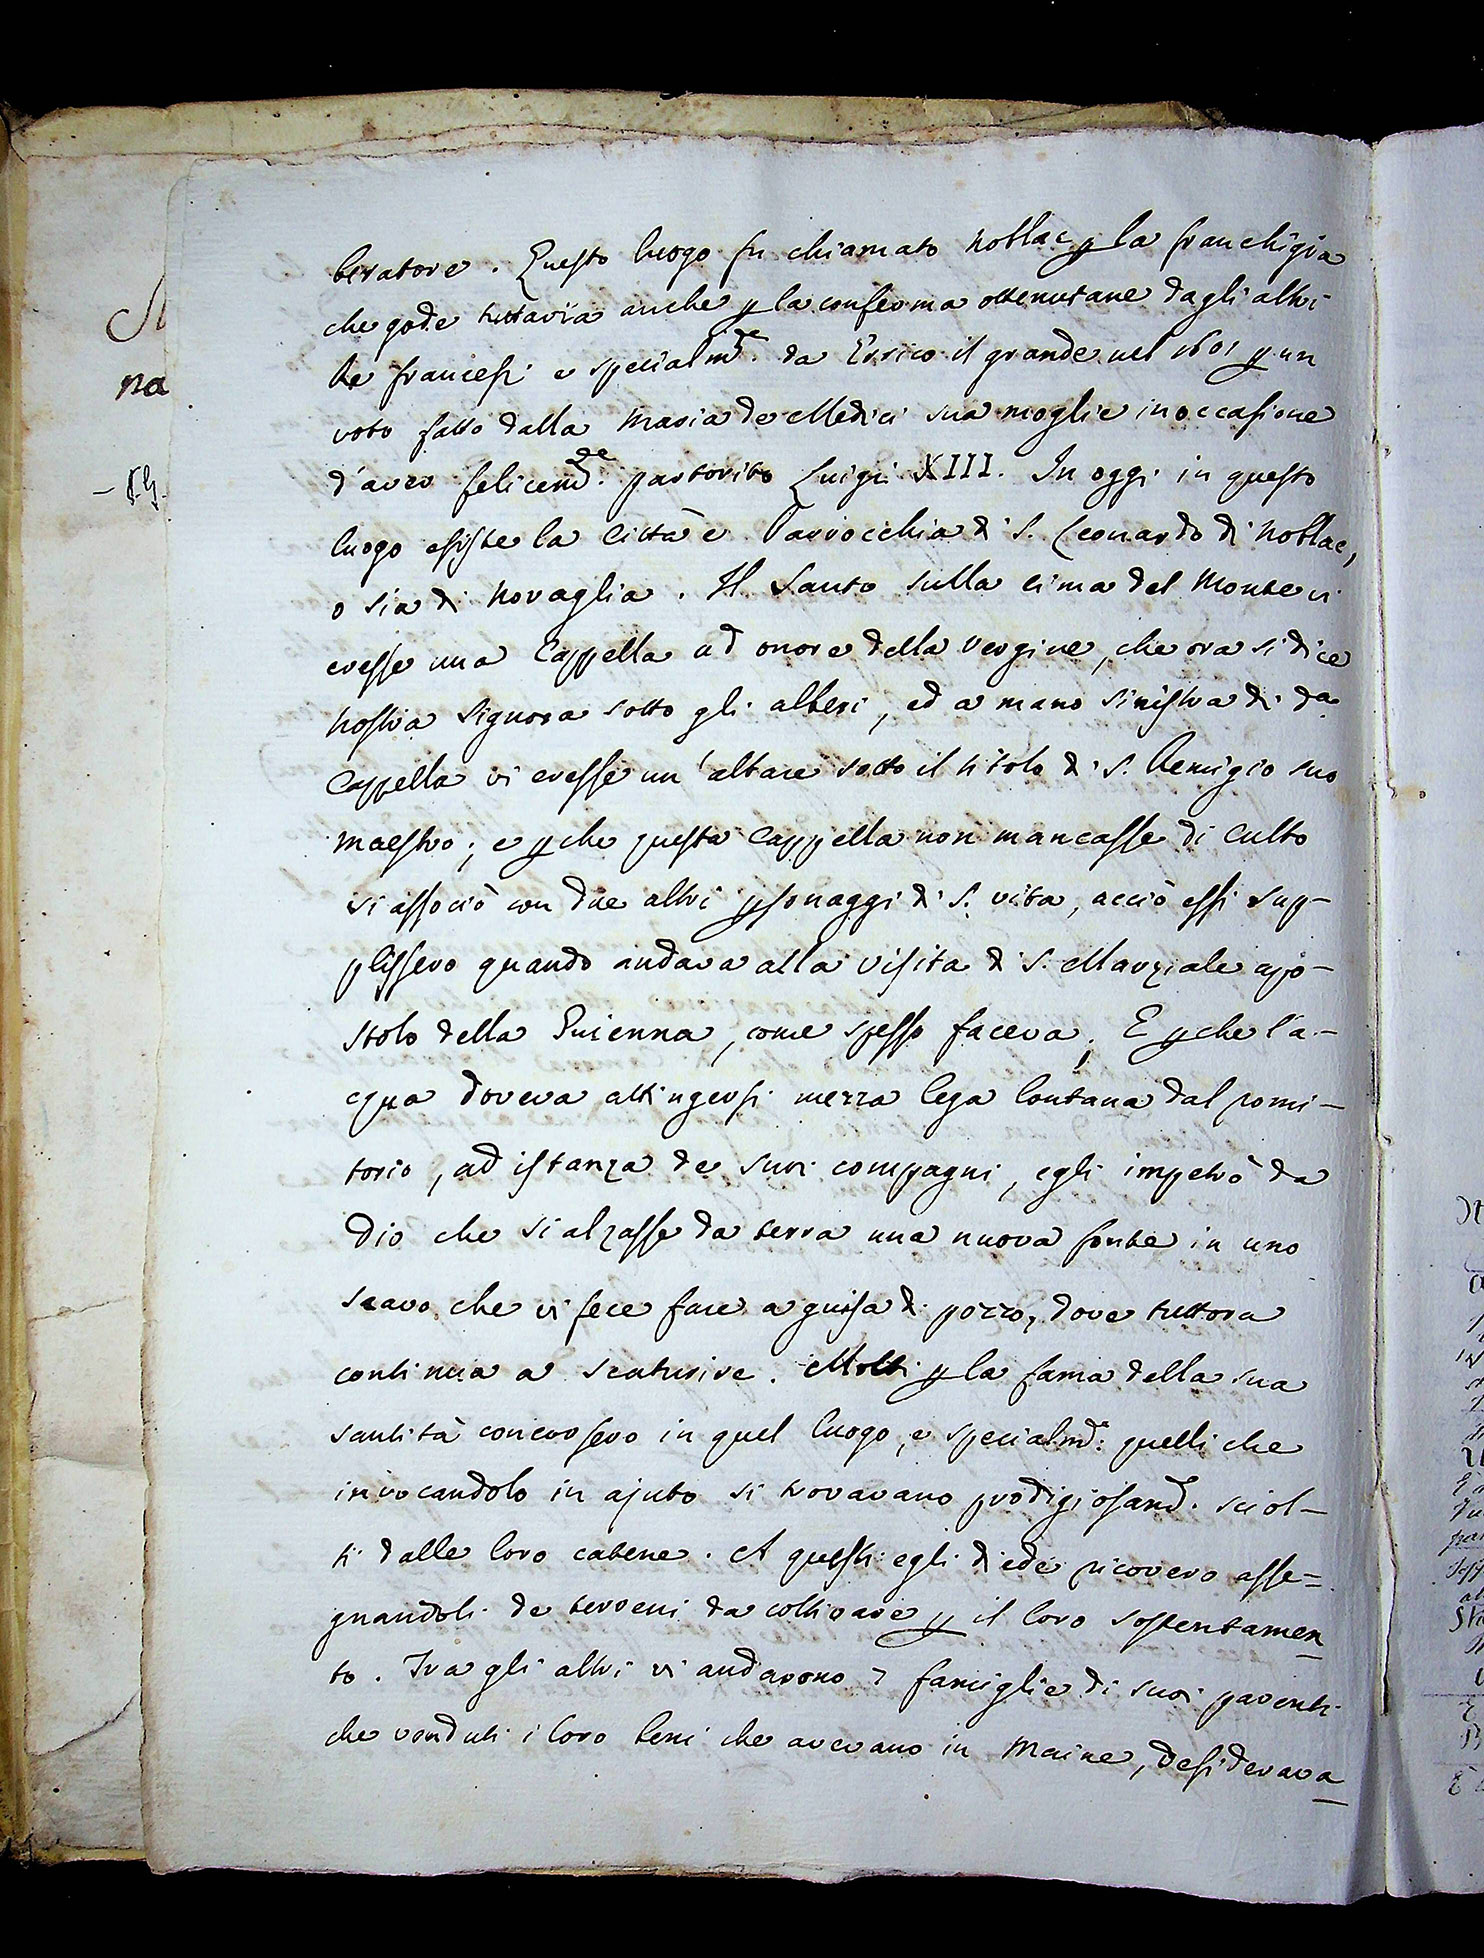 beratore. Questo luogo fu chiamato Noblac p la franchigia
che gode tuttavia anche p la conferma ottenutane dagli altri
Re francesi e specialmte. da Errico il grande nel 1601 p un
voto fatto dalla Maria de Medici sua moglie in occasione
d'aver felicemte. partorito Luigi XIII. In oggi in questo
luogo esiste la Città e Parrocchia di S. Leonardo di Noblac,
o sia di Novaglia. Il Santo sulla cima del Monte vi
eresse una Cappella ad onore della Vergine, che ora si dice
Nostra Signora sotto gli alberi, ed a mano sinistra di da
Cappella vi eresse un'altare sotto il titolo di S. Remigio suo
Maestro; e p che questa Cappella non mancasse di culto
si associò con due altri psonaggi di S. vita, acciò essi sup-
plissero quando andava alla visita di S. Marziale apo-
stolo della Guienna, come spesso faceva; E p che l'a-
cqua doveva attingersi mezza lega lontana dal romi-
torio, ad istanza de suoi compagni, egli impetrò da
Dio che si alzasse da terra una nuova fonte in uno
scavo che vi fece fare a guisa di pozzo, dove tuttora
continua a scaturire. Molti p la fama della sua
santità concorsero in quel luogo, e specialmte: quelli che
invocandolo in ajuto si trovavano prodigiosamte. sciol-
ti dalle loro catene. A questi egli diede ricovero asse=
gnandoli de terreni da coltivare p il loro sostentamen
to. Tra gli altri vi andarono 7 famiglie di suoi parenti
che venduti i loro beni che avevano in Maine, desiderava